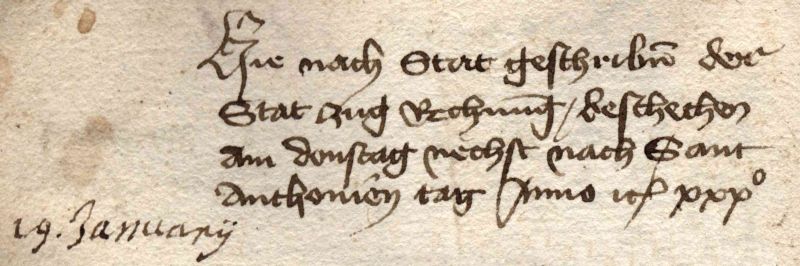 Hie nach Stat geschribn̄ der
Stat Zug Rechnung / beschechen
am donstag nechst nach Sant
Anthonien tag Anno
19. January